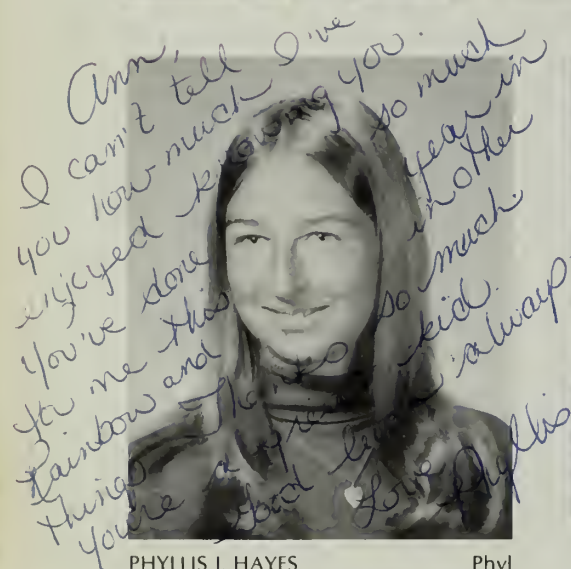 Ann,
I can't tell
you how much I've
enjoyed knowing you.
You've done so much
for me this year in
Rainbow and in other
things. Thanks so much.
You're a great kid.
Good luck always
Love Phyllis
PHYLLIS L HAYES
Phyl